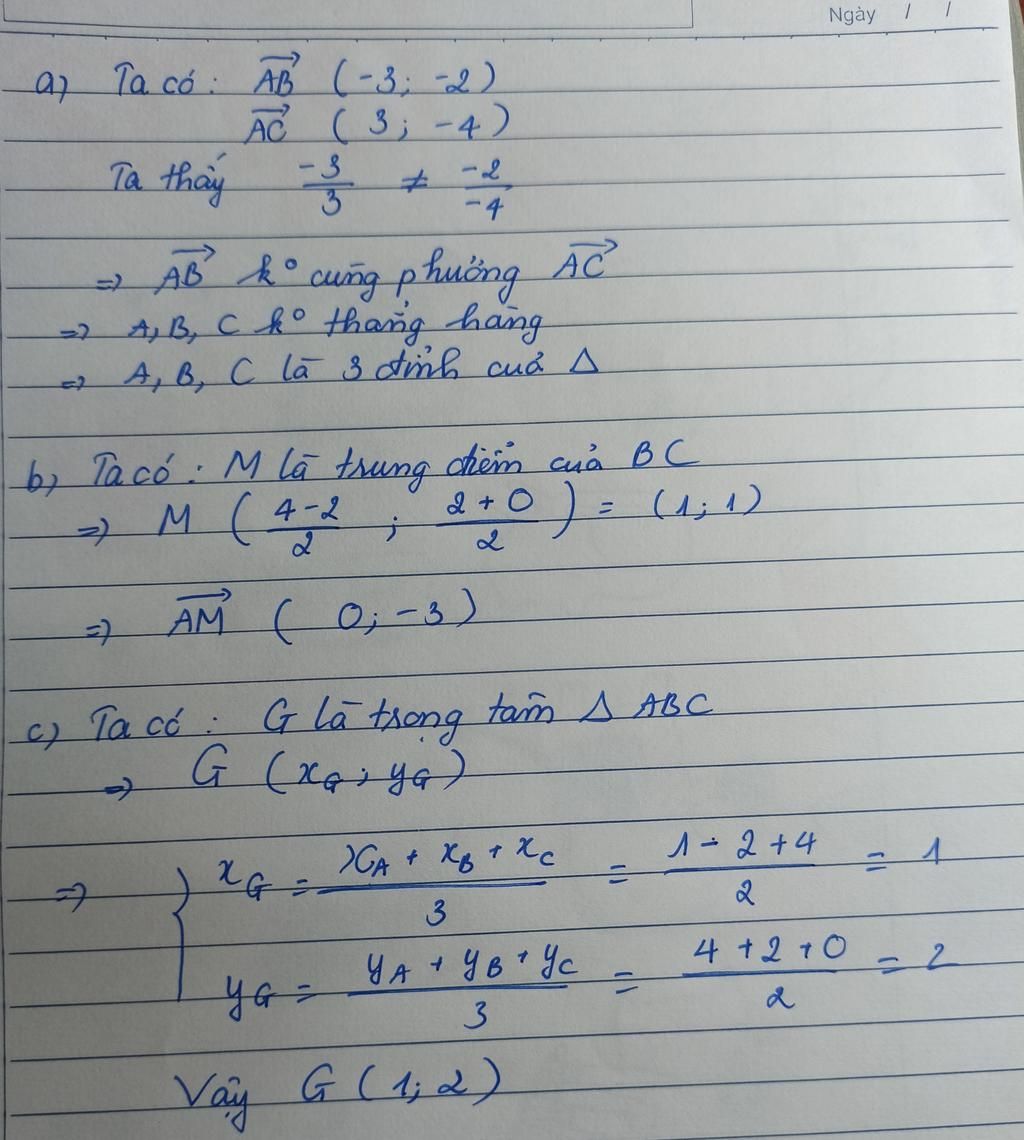 Ngày / /
a) Ta có: AB (-3; -2)
AC (3; -4)
Ta thấy -3/3 ≠ -2/-4
=> AB k° cùng phương AC
=> A, B, C k° thẳng hàng
=> A, B, C là 3 đỉnh của Δ
b) Ta có: M là trung điểm của BC
=> M (4-2/2 ; 2+0/2) = (1; 1)
=> AM (0; -3)
c) Ta có: G là trọng tâm Δ ABC
=> G (xG; yG)
=> { xG = xA + xB + xC/3 = 1-2+4/2 = 1
yG = yA + yB + yC/3 = 4+2+0/2 = 2
Vậy G (1; 2)